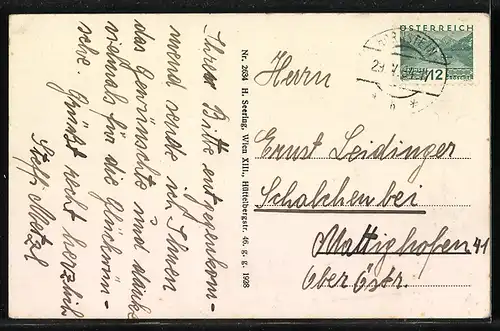 Ihrer Bitte entgegenkom-
mend sende ich Ihnen
das Gewünschte und danke
vielmals für die Glückwün-
sche. Grüßt recht herzlich
Steffi Metzl
Nr. 2634 H. Seering, Wien XIII., Hüttelbergstr. 46. g. g. 1928
ÖSTERREICH
12
Herrn
Ernst Leidinger
Schalchen bei
Mattighofen 41
Ober Östr.